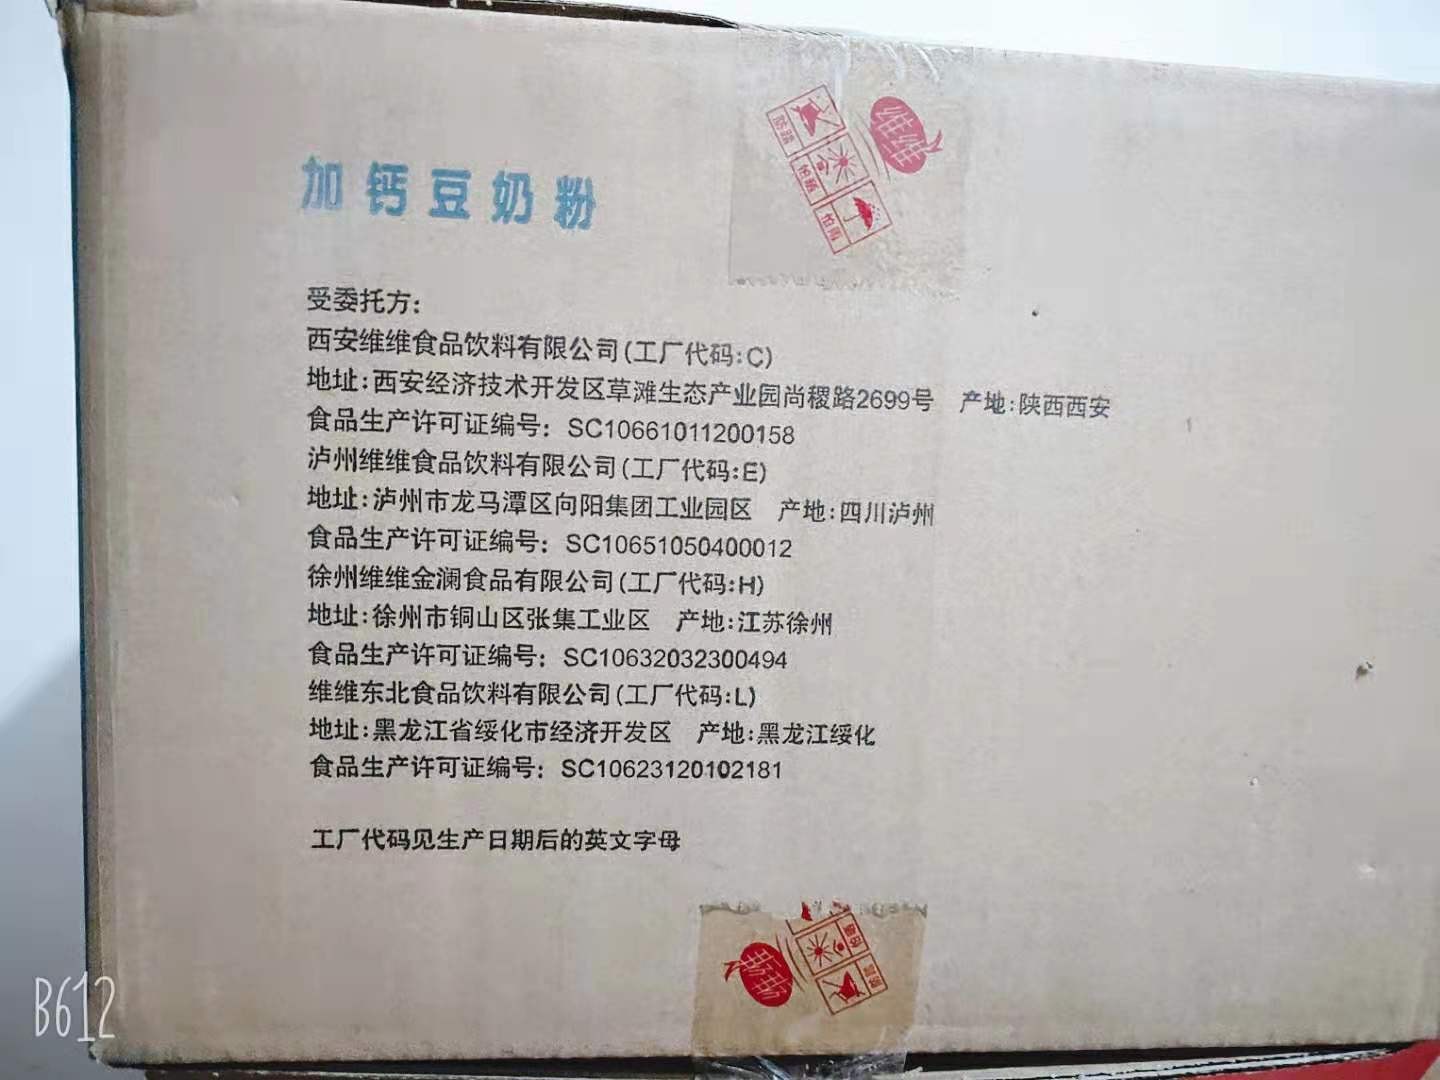 加钙豆奶粉
维维
防踏
怕晒
怕雨
受委托方：
西安维维食品饮料有限公司(工厂代码:C)
地址:西安经济技术开发区草滩生态产业园尚稷路2699号 产地:陕西西安
食品生产许可证编号：SC10661011200158
泸州维维食品饮料有限公司(工厂代码:E)
地址:泸州市龙马潭区向阳集团工业园区 产地:四川泸州
食品生产许可证编号：SC10651050400012
徐州维维金澜食品有限公司(工厂代码:H)
地址:徐州市铜山区张集工业区 产地:江苏徐州
食品生产许可证编号：SC10632032300494
维维东北食品饮料有限公司(工厂代码:L)
地址:黑龙江省绥化市经济开发区 产地:黑龙江绥化
食品生产许可证编号：SC10623120102181
工厂代码见生产日期后的英文字母
维维
怕晒
防踏
B612